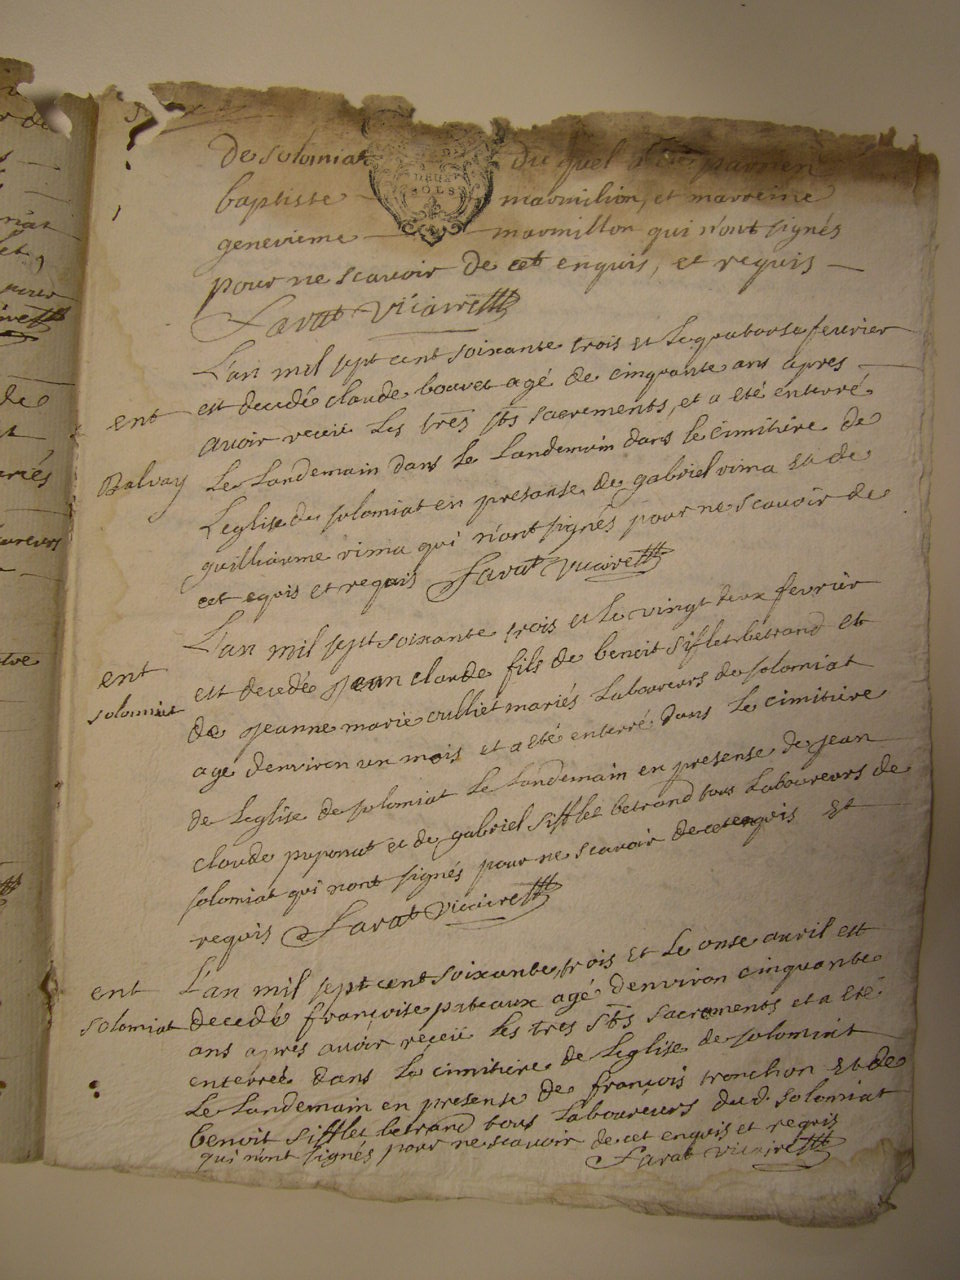 de solomiat du quel a été parrien
DEUX
SOLS
baptiste marmilion, et marreine
genevieme marmillon qui n'ont signés
pour ne scavoir de cet enquis, et requis
Favat Vicaire
L'an mil sept cent soixante trois et le quatorse fevrier
ent
est decedé claude bouvet agé de cinquante ans apres
avoir receü Les tres sts sacrements, et a eté enterré
Balvay
Le Landemain dans le Landemain dans le cimitiére de
L'eglise de solomiat en presanse de gabriel vima et de
guilliaume vima qui n'ont signés pour ne scavoir de
cet eqvis et requis Favat Vicaire
L'an mil sept soixante trois et le vingt deux fevriér
ent
solomiat
est decedé jean claude fils de benoit sifflet betrand et
de jeanne marie culliet mariés Laboureurs de solomiat
age d'environ un mois et a eté enterré dans le cimitiére
de L'eglise de solomiat Le Landemain en presense de jean
claude puponat et de gabriel sifflet betrand tous Laboureurs de
solomiat qui n'ont signés pour ne scavoir de cet enqvis et
reqvis Favat Vicaire
ent
L'an mil sept cent soixante, trois et Le onse avril est
solomiat
decedé françoise puteaux agé d'environ cinquante
ans apres avoir receü les tres sts sacrements et a eté
enterreé dans Le cimitiére de L'eglise de solomiat
Le Landemain en presense de francois tronchon et de
benoit sifflet betrand tous Laboureurs dud. solomiat
qui n'ont signés pour ne scavoir de cet enqvis et reqvis
Favat Vicaire